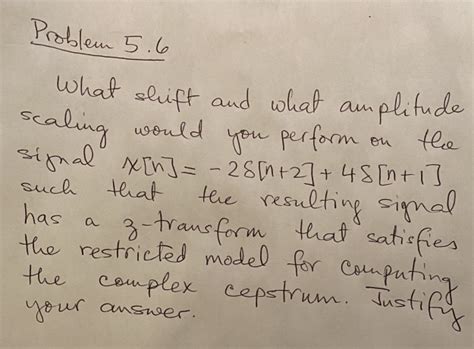 Problem 5.6
What shift and what amplitude
scaling would you perform on the
signal x[n] = -2δ[n+2] + 4δ[n+1]
such that the resulting signal
has a z-transform that satisfies
the restricted model for computing
the complex cepstrum. Justify
your answer.